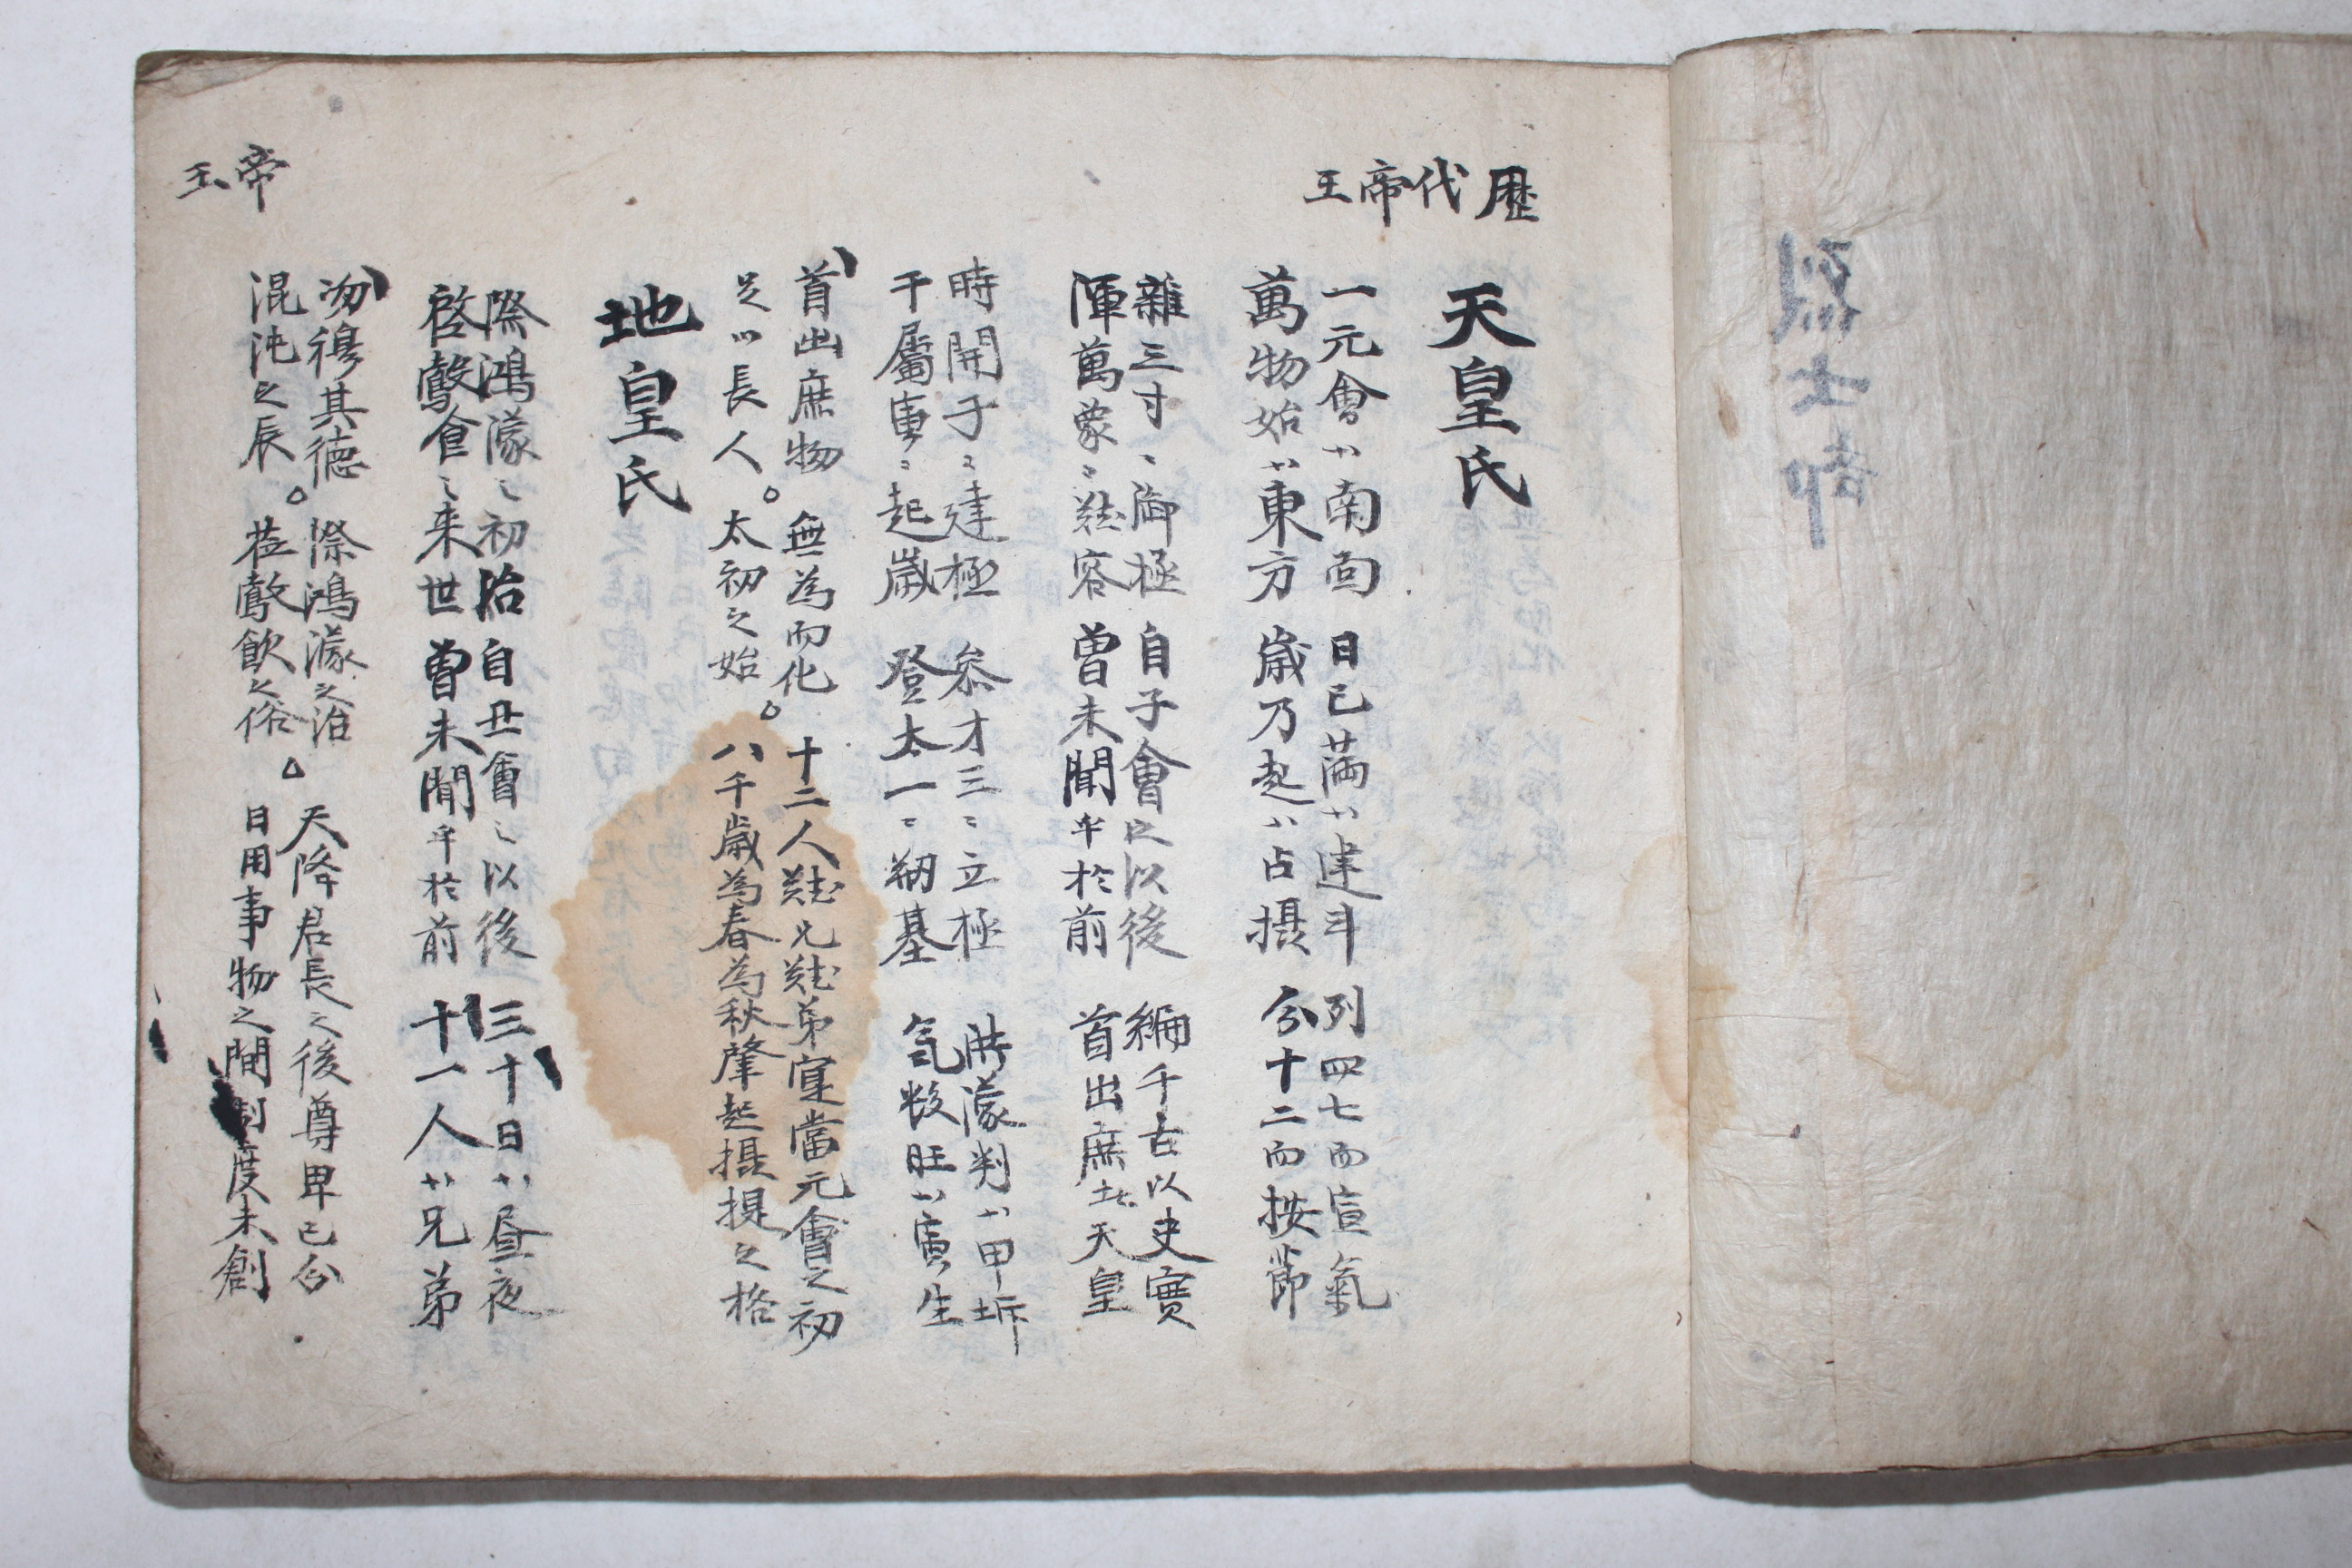 歷代帝王
天皇氏
一元會 南面 日已滿 建斗 列四七而宣氣
萬物始 東方 歲乃起 占攝 分十二而按節
離三寸 御極 自子會 以後 編千古以史實
渾萬象 容 曾未聞乎於前 首出庶 天皇
時開子 建極 參才三 立極 濛判 甲坼
干屬 起歲 登太一 基 氣 旺 寅生
首出庶物 無為而化 十二人 兄 弟寔當元會之初
足 長人 太初之始 八千歲為春為秋肇起攝提之格
地皇氏
際鴻濛 初治自丑會 以後 三十日 昼夜
啓鷇食 来世曾未聞乎於前 十一人 兄弟
穆其德 際鴻濛之治 天降君長之後尊卑已分
混沌之辰 鷇飲之俗 日用事物之間制度未創
帝王
烈士部